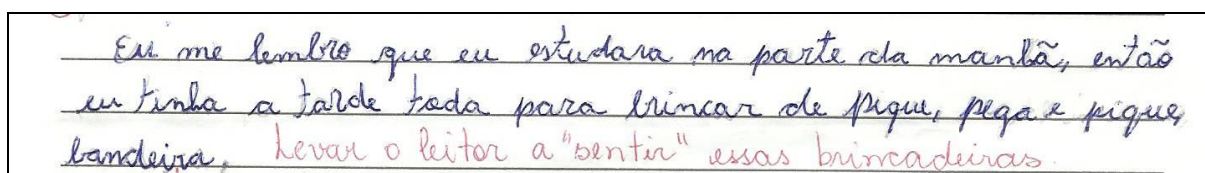 Eu me lembro que eu estudava na parte da manhã, então
eu tinha a tarde toda para brincar de pique, pega e pique,
bandeira. Levar o leitor a "sentir" essas brincadeiras.